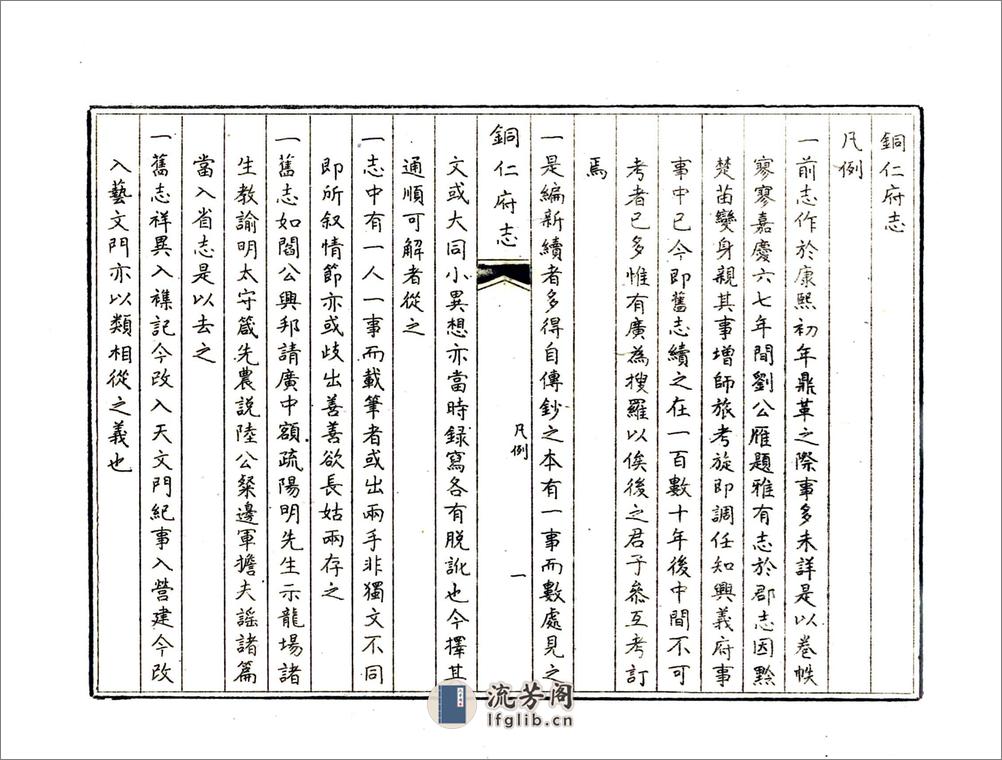 銅仁府志
凡例
一前志作於康熙初年鼎革之際事多未詳是以卷帙
寥寥嘉慶六七年間劉公雁題雅有志於郡志因黔
楚苗變身親其事增師旅考旋即調任知興義府事
事中已今即舊志續之在一百數十年後中間不可
考者已多惟有廣為搜羅以俟後之君子參互考訂
焉
一是編新續者多得自傳鈔之本有一事而數處見之
銅仁府志
凡例
一
文或大同小異想亦當時録寫各有脱訛也今擇其
通順可解者從之
一志中有一人一事而載筆者或出兩手非獨文不同
即所叙情節亦或歧出善善欲長姑兩存之
一舊志如閻公興邦請廣中額疏陽明先生示龍場諸
生教諭明太守箴先農説陸公粲邊軍擔夫謡諸篇
當入省志是以去之
一舊志祥異入襍記今改入天文門紀事入營建今改
入藝文門亦以類相從之義也
流芳阁
lfglib.cn